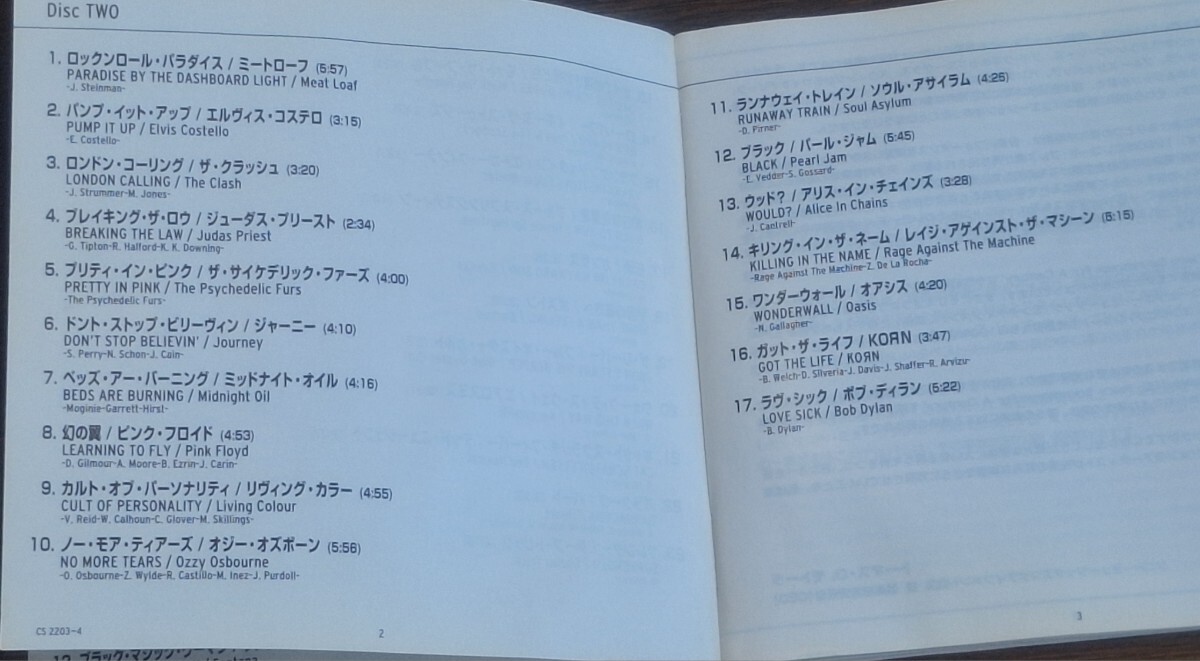 Disc TWO
1. ロックンロール・パラダイス / ミートローフ (5:57)
PARADISE BY THE DASHBOARD LIGHT / Meat Loaf
-J. Steinman-
2. パンプ・イット・アップ / エルヴィス・コステロ (3:15)
PUMP IT UP / Elvis Costello
-E. Costello-
3. ロンドン・コーリング / ザ・クラッシュ (3:20)
LONDON CALLING / The Clash
-J. Strummer-M. Jones-
4. ブレイキング・ザ・ロウ / ジューダス・プリースト (2:34)
BREAKING THE LAW / Judas Priest
-G. Tipton-R. Halford-K. K. Downing-
5. プリティ・イン・ピンク / ザ・サイケデリック・ファーズ (4:00)
PRETTY IN PINK / The Psychedelic Furs
-The Psychedelic Furs-
6. ドント・ストップ・ビリーヴィン / ジャーニー (4:10)
DON'T STOP BELIEVIN' / Journey
-S. Perry-N. Schon-J. Cain-
7. ベッズ・アー・バーニング / ミッドナイト・オイル (4:16)
BEDS ARE BURNING / Midnight Oil
-Moginie-Garrett-Hirst-
8. 幻の翼 / ピンク・フロイド (4:53)
LEARNING TO FLY / Pink Floyd
-D. Gilmour-A. Moore-B. Ezrin-J. Carin-
9. カルト・オブ・パーソナリティ / リヴィング・カラー (4:55)
CULT OF PERSONALITY / Living Colour
-V. Reid-W. Calhoun-C. Glover-M. Skillings-
10. ノー・モア・ティアーズ / オジー・オズボーン (5:56)
NO MORE TEARS / Ozzy Osbourne
-O. Osbourne-Z. Wylde-R. Castillo-M. Inez-J. Purdoll-
CS 2203-4
2
11. ランナウェイ・トレイン / ソウル・アサイラム (4:26)
RUNAWAY TRAIN / Soul Asylum
-D. Pirner-
12. ブラック / パール・ジャム (5:45)
BLACK / Pearl Jam
-E. Vedder-S. Gossard-
13. ウッド? / アリス・イン・チェインズ (3:28)
WOULD? / Alice In Chains
-J. Cantrell-
14. キリング・イン・ザ・ネーム / レイジ・アゲインスト・ザ・マシーン (5:15)
KILLING IN THE NAME / Rage Against The Machine
-Rage Against The Machine-Z. De La Rocha-
15. ワンダーウォール / オアシス (4:20)
WONDERWALL / Oasis
-N. Gallagher-
16. ガット・ザ・ライフ / KOЯN (3:47)
GOT THE LIFE / KOЯN
-B. Welch-D. Silveria-J. Davis-J. Shaffer-R. Arvizu-
17. ラヴ・シック / ボブ・ディラン (5:22)
LOVE SICK / Bob Dylan
-B. Dylan-
3